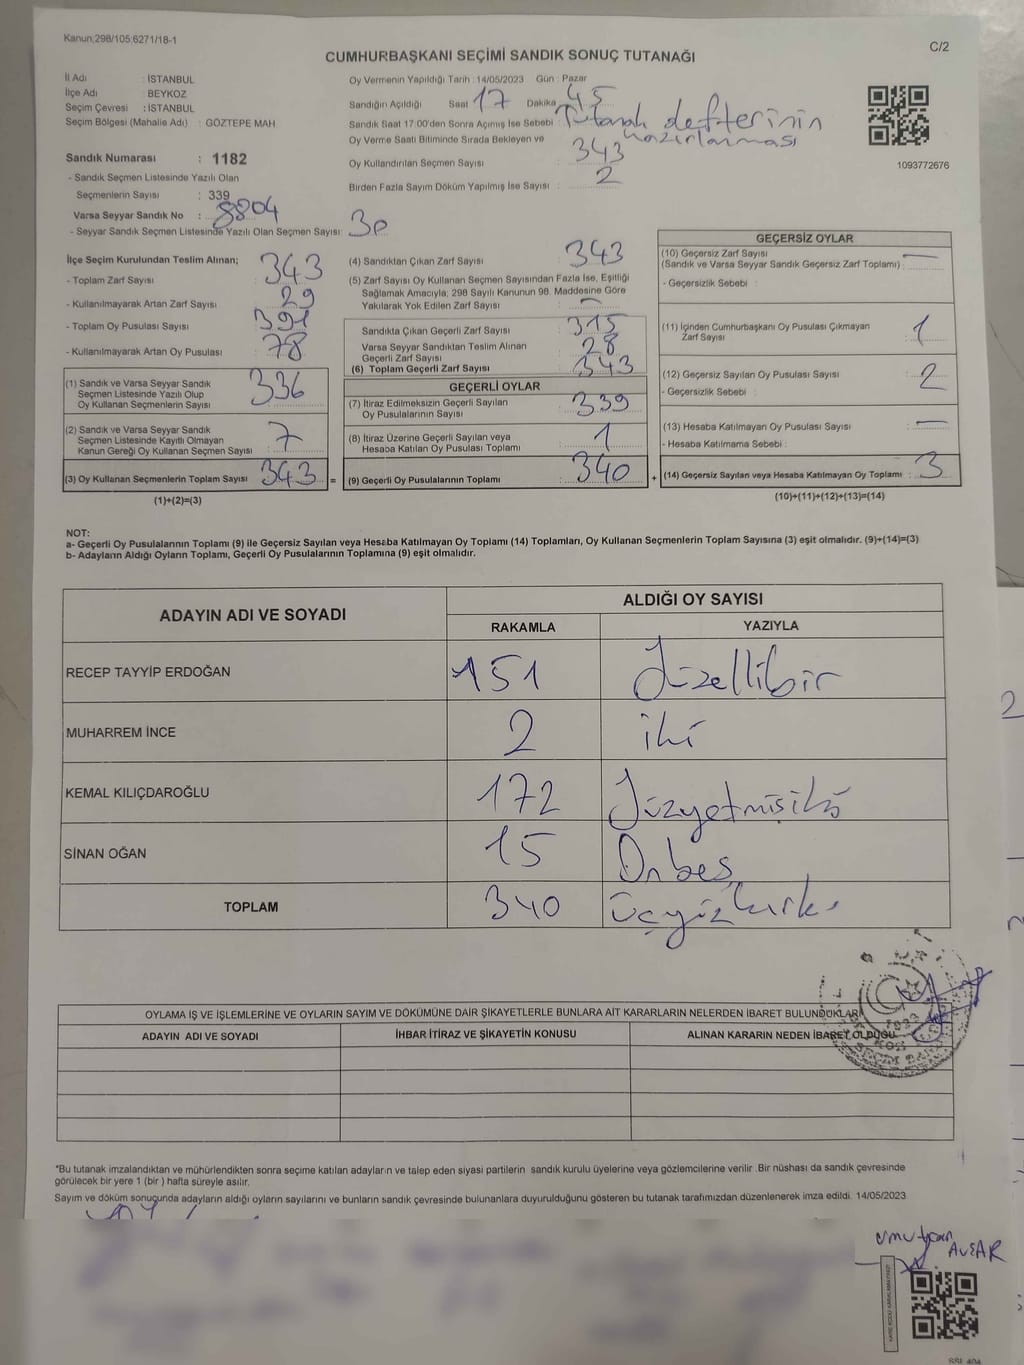 Kanun;298/105;6271/18-1
C/2
CUMHURBAŞKANI SEÇİMİ SANDIK SONUÇ TUTANAĞI
İl Adı : İSTANBUL
İlçe Adı : BEYKOZ
Seçim Çevresi : İSTANBUL
Seçim Bölgesi (Mahalle Adı) : GÖZTEPE MAH
Sandık Numarası : 1182
- Sandık Seçmen Listesinde Yazılı Olan
Seçmenlerin Sayısı : 339
Varsa Seyyar Sandık No : 8804
- Seyyar Sandık Seçmen Listesinde Yazılı Olan Seçmen Sayısı: 30
Oy Vermenin Yapıldığı Tarih : 14/05/2023 Gün : Pazar
Sandığın Açıldığı Saat 17 Dakika 45
Sandık Saat 17:00'den Sonra Açmış İse Sebebi : Tutanak defterinin hazırlanması
Oy Verme Saati Bitiminde Sırada Bekleyen ve
Oy Kullandırılan Seçmen Sayısı 343
Birden Fazla Sayım Döküm Yapılmış İse Sayısı : 2
1093772676
İlçe Seçim Kurulundan Teslim Alınan;
- Toplam Zarf Sayısı : 343
- Kullanılmayarak Artan Zarf Sayısı : 29
- Toplam Oy Pusulası Sayısı : 391
- Kullanılmayarak Artan Oy Pusulası : 78
(1) Sandık ve Varsa Seyyar Sandık
Seçmen Listesinde Yazılı Olup
Oy Kullanan Seçmenlerin Sayısı : 336
(2) Sandık ve Varsa Seyyar Sandık
Seçmen Listesinde Kayıtlı Olmayan
Kanun Gereği Oy Kullanan Seçmen Sayısı : 7
(3) Oy Kullanan Seçmenlerin Toplam Sayısı : 343 =
(1)+(2)=(3)
(4) Sandıktan Çıkan Zarf Sayısı : 343
(5) Zarf Sayısı Oy Kullanan Seçmen Sayısından Fazla İse, Eşitliği
Sağlamak Amacıyla; 298 Sayılı Kanunun 98. Maddesine Göre
Yakılarak Yok Edilen Zarf Sayısı : —
Sandıkta Çıkan Geçerli Zarf Sayısı : 315
Varsa Seyyar Sandıktan Teslim Alınan
Geçerli Zarf Sayısı : 28
(6) Toplam Geçerli Zarf Sayısı : 343
GEÇERLİ OYLAR
(7) İtiraz Edilmeksizin Geçerli Sayılan
Oy Pusulalarının Sayısı : 339
(8) İtiraz Üzerine Geçerli Sayılan veya
Hesaba Katılan Oy Pusulası Toplamı : 1
(9) Geçerli Oy Pusulalarının Toplamı : 340 +
GEÇERSİZ OYLAR
(10) Geçersiz Zarf Sayısı
(Sandık ve Varsa Seyyar Sandık Geçersiz Zarf Toplamı) : —
- Geçersizlik Sebebi :
(11) İçinden Cumhurbaşkanı Oy Pusulası Çıkmayan
Zarf Sayısı : 1
(12) Geçersiz Sayılan Oy Pusulası Sayısı : 2
- Geçersizlik Sebebi :
(13) Hesaba Katılmayan Oy Pusulası Sayısı : —
- Hesaba Katılmama Sebebi :
(14) Geçersiz Sayılan veya Hesaba Katılmayan Oy Toplamı : 3
(10)+(11)+(12)+(13)=(14)
NOT:
a- Geçerli Oy Pusulaları Toplamı (9) ile Geçersiz Sayılan veya Hesaba Katılmayan Oy Toplamı (14) Toplamları, Oy Kullanan Seçmenlerin Toplam Sayısına (3) eşit olmalıdır. (9)+(14)=(3)
b- Adayların Aldığı Oyların Toplamı, Geçerli Oy Pusulalarının Toplamına (9) eşit olmalıdır.
ADAYIN ADI VE SOYADI
ALDIĞI OY SAYISI
RAKAMLA YAZIYLA
RECEP TAYYİP ERDOĞAN 151 Yüzellibir
MUHARREM İNCE 2 iki
KEMAL KILIÇDAROĞLU 172 Yüzyetmişiki
SİNAN OĞAN 15 Onbeş
TOPLAM 340 üçyüzkırk
OYLAMA İŞ VE İŞLEMLERİNE VE OYLARIN SAYIM VE DÖKÜMÜNE DAİR ŞİKAYETLERLE BUNLARA AİT KARARLARIN NELERDEN İBARET BULUNDUKLARI
ADAYIN ADI VE SOYADI İHBAR İTİRAZ VE ŞİKAYETİN KONUSU ALINAN KARARIN NEDEN İBARET OLDUĞU
*Bu tutanak imzalandıktan ve mühürlendikten sonra seçime katılan adayların ve talep eden siyasi partilerin sandık kurulu üyelerine veya gözlemcilerine verilir .Bir nüshası da sandık çevresinde
görülecek bir yere 1 (bir ) hafta süreyle asılır.
Sayım ve döküm sonucunda adayların aldığı oyların sayılarını ve bunların sandık çevresinde bulunanlara duyurulduğunu gösteren bu tutanak tarafımızdan düzenlenerek imza edildi. 14/05/2023
Umutcan
AVŞAR